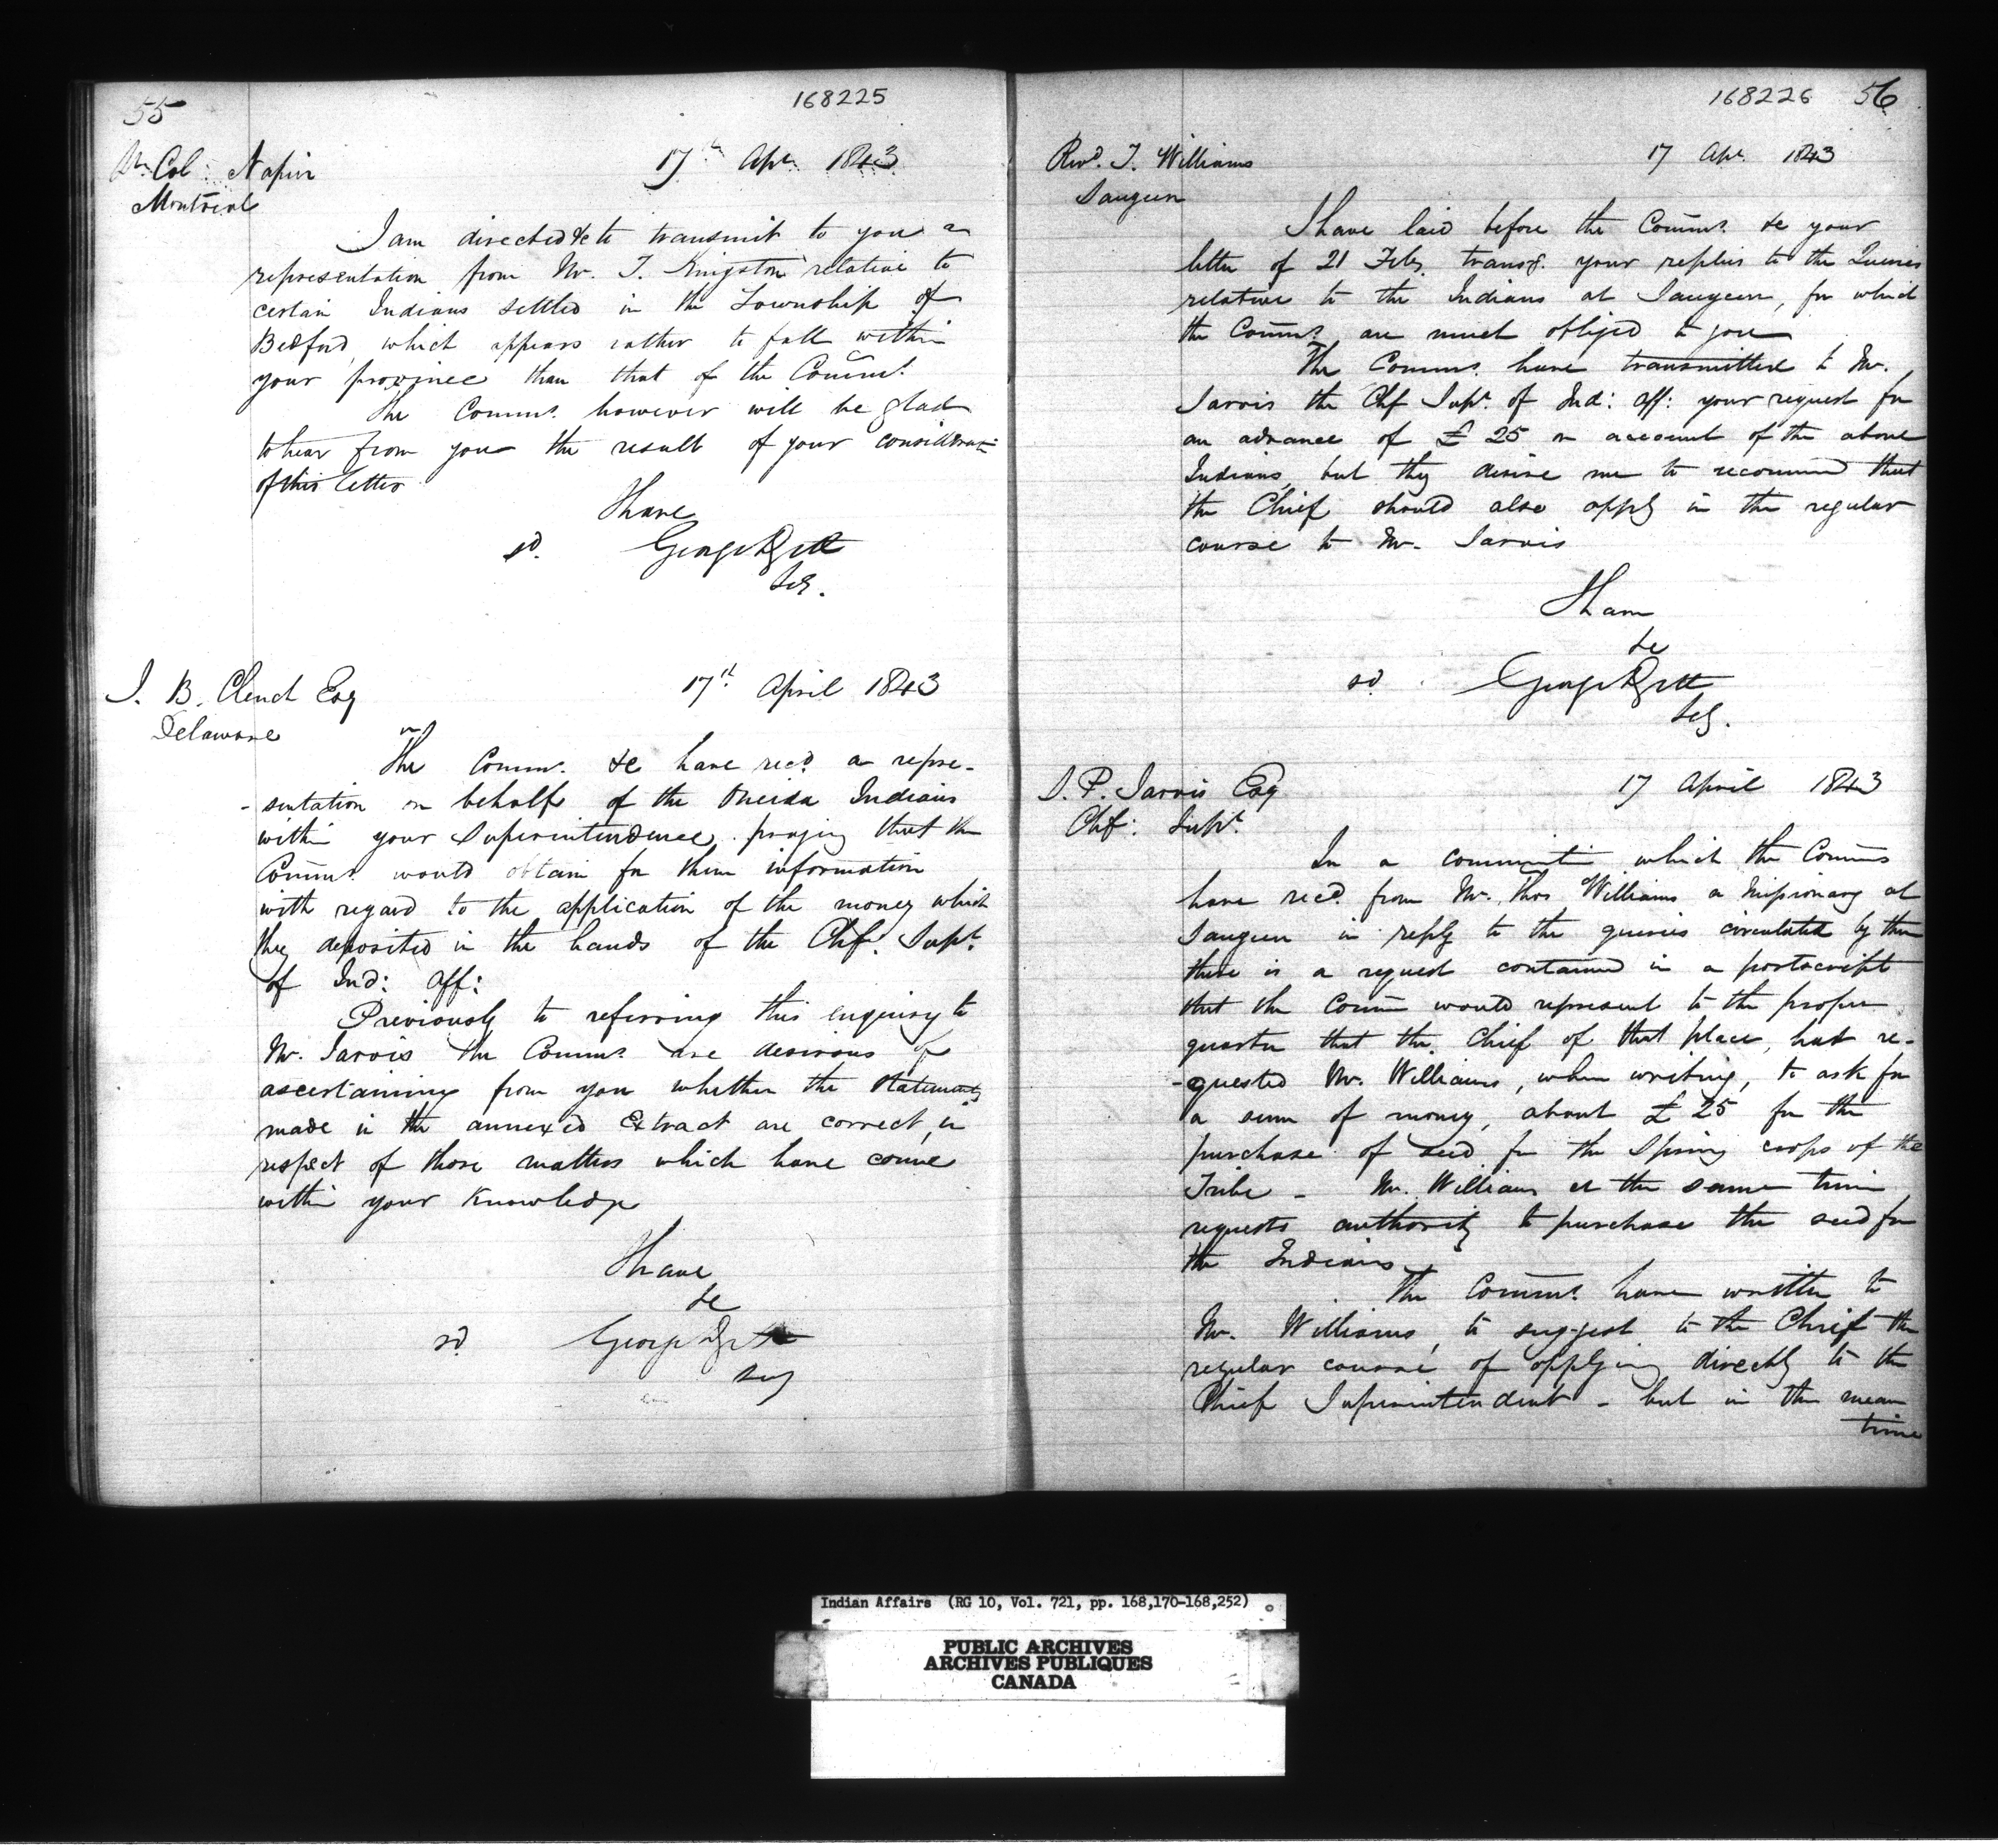 55
168225
Col: Napier
17th Apr. 1843
Montreal
I am directed &c to transmit to you a
representation from Mr. T. Kingston relative to
certain Indians settled in the Township of
Bedford, which appears rather to fall within
your province than that of the Commrs.
The Commrs. however will be glad
to hear from you the result of your consideration
of this letter
I have
sd. George
Secy.
J. B. Clench Esq
17th April 1843
Delaware
The Commrs. &c have recd. a repre-
-sentation on behalf of the Oneida Indians
within your Superintendence praying that the
Commrs. would obtain for them information
with regard to the application of the money which
they deposited in the hands of the Chf. Supt.
of Ind: Aff:
Previously to referring this enquiry to
Mr. Jarvis the Commrs. are desirous of
ascertaining from you whether the statements
made in the annexed Extract are correct, in
respect of those matters which have come
within your knowledge
I have
&c
sd. George
Secy
168226 56
Revd. T. Williams
17 Apr. 1843
Saugeen
I have laid before the Commrs. &c your
letter of 21 Feby. transg. your replies to the Queries
relative to the Indians at Saugeen, for which
the Commrs. are much obliged to you
The Commrs. have transmitted to Mr.
Jarvis the Chf Supt. of Ind: Aff: your request for
an advance of £ 25 on account of the above
Indians, but they desire me to recommend that
the Chief should also apply in the regular
course to Mr. Jarvis
I have
&c
sd. George
Secy.
S. P. Jarvis Esq
17 April 1843
Chf: Supt.
In a communicn which the Commrs
have recd. from Mr. Thos Williams a Missionary at
Saugeen in reply to the queries circulated by them
there is a request contained in a postscript
that the Comm would represent to the proper
quarter that the Chief of that place, had re-
-quested Mr. Williams, when writing, to ask for
a sum of money, about £ 25 for the
purchase of seed for the Spring crops of the
Tribe - Mr. Williams at the same time
requests authority to purchase the seed for
the Indians
The Commrs. have written to
Mr. Williams, to suggest to the Chief the
regular course of applying directly to the
Chief Superintendent - but in the mean
time
Indian Affairs (RG 10, Vol. 721, pp. 168,170-168,252)
PUBLIC ARCHIVES
ARCHIVES PUBLIQUES
CANADA